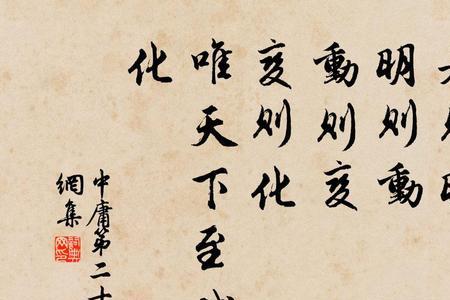 明則動
動則變
變則化
唯天下至
化
中庸第二十
網集